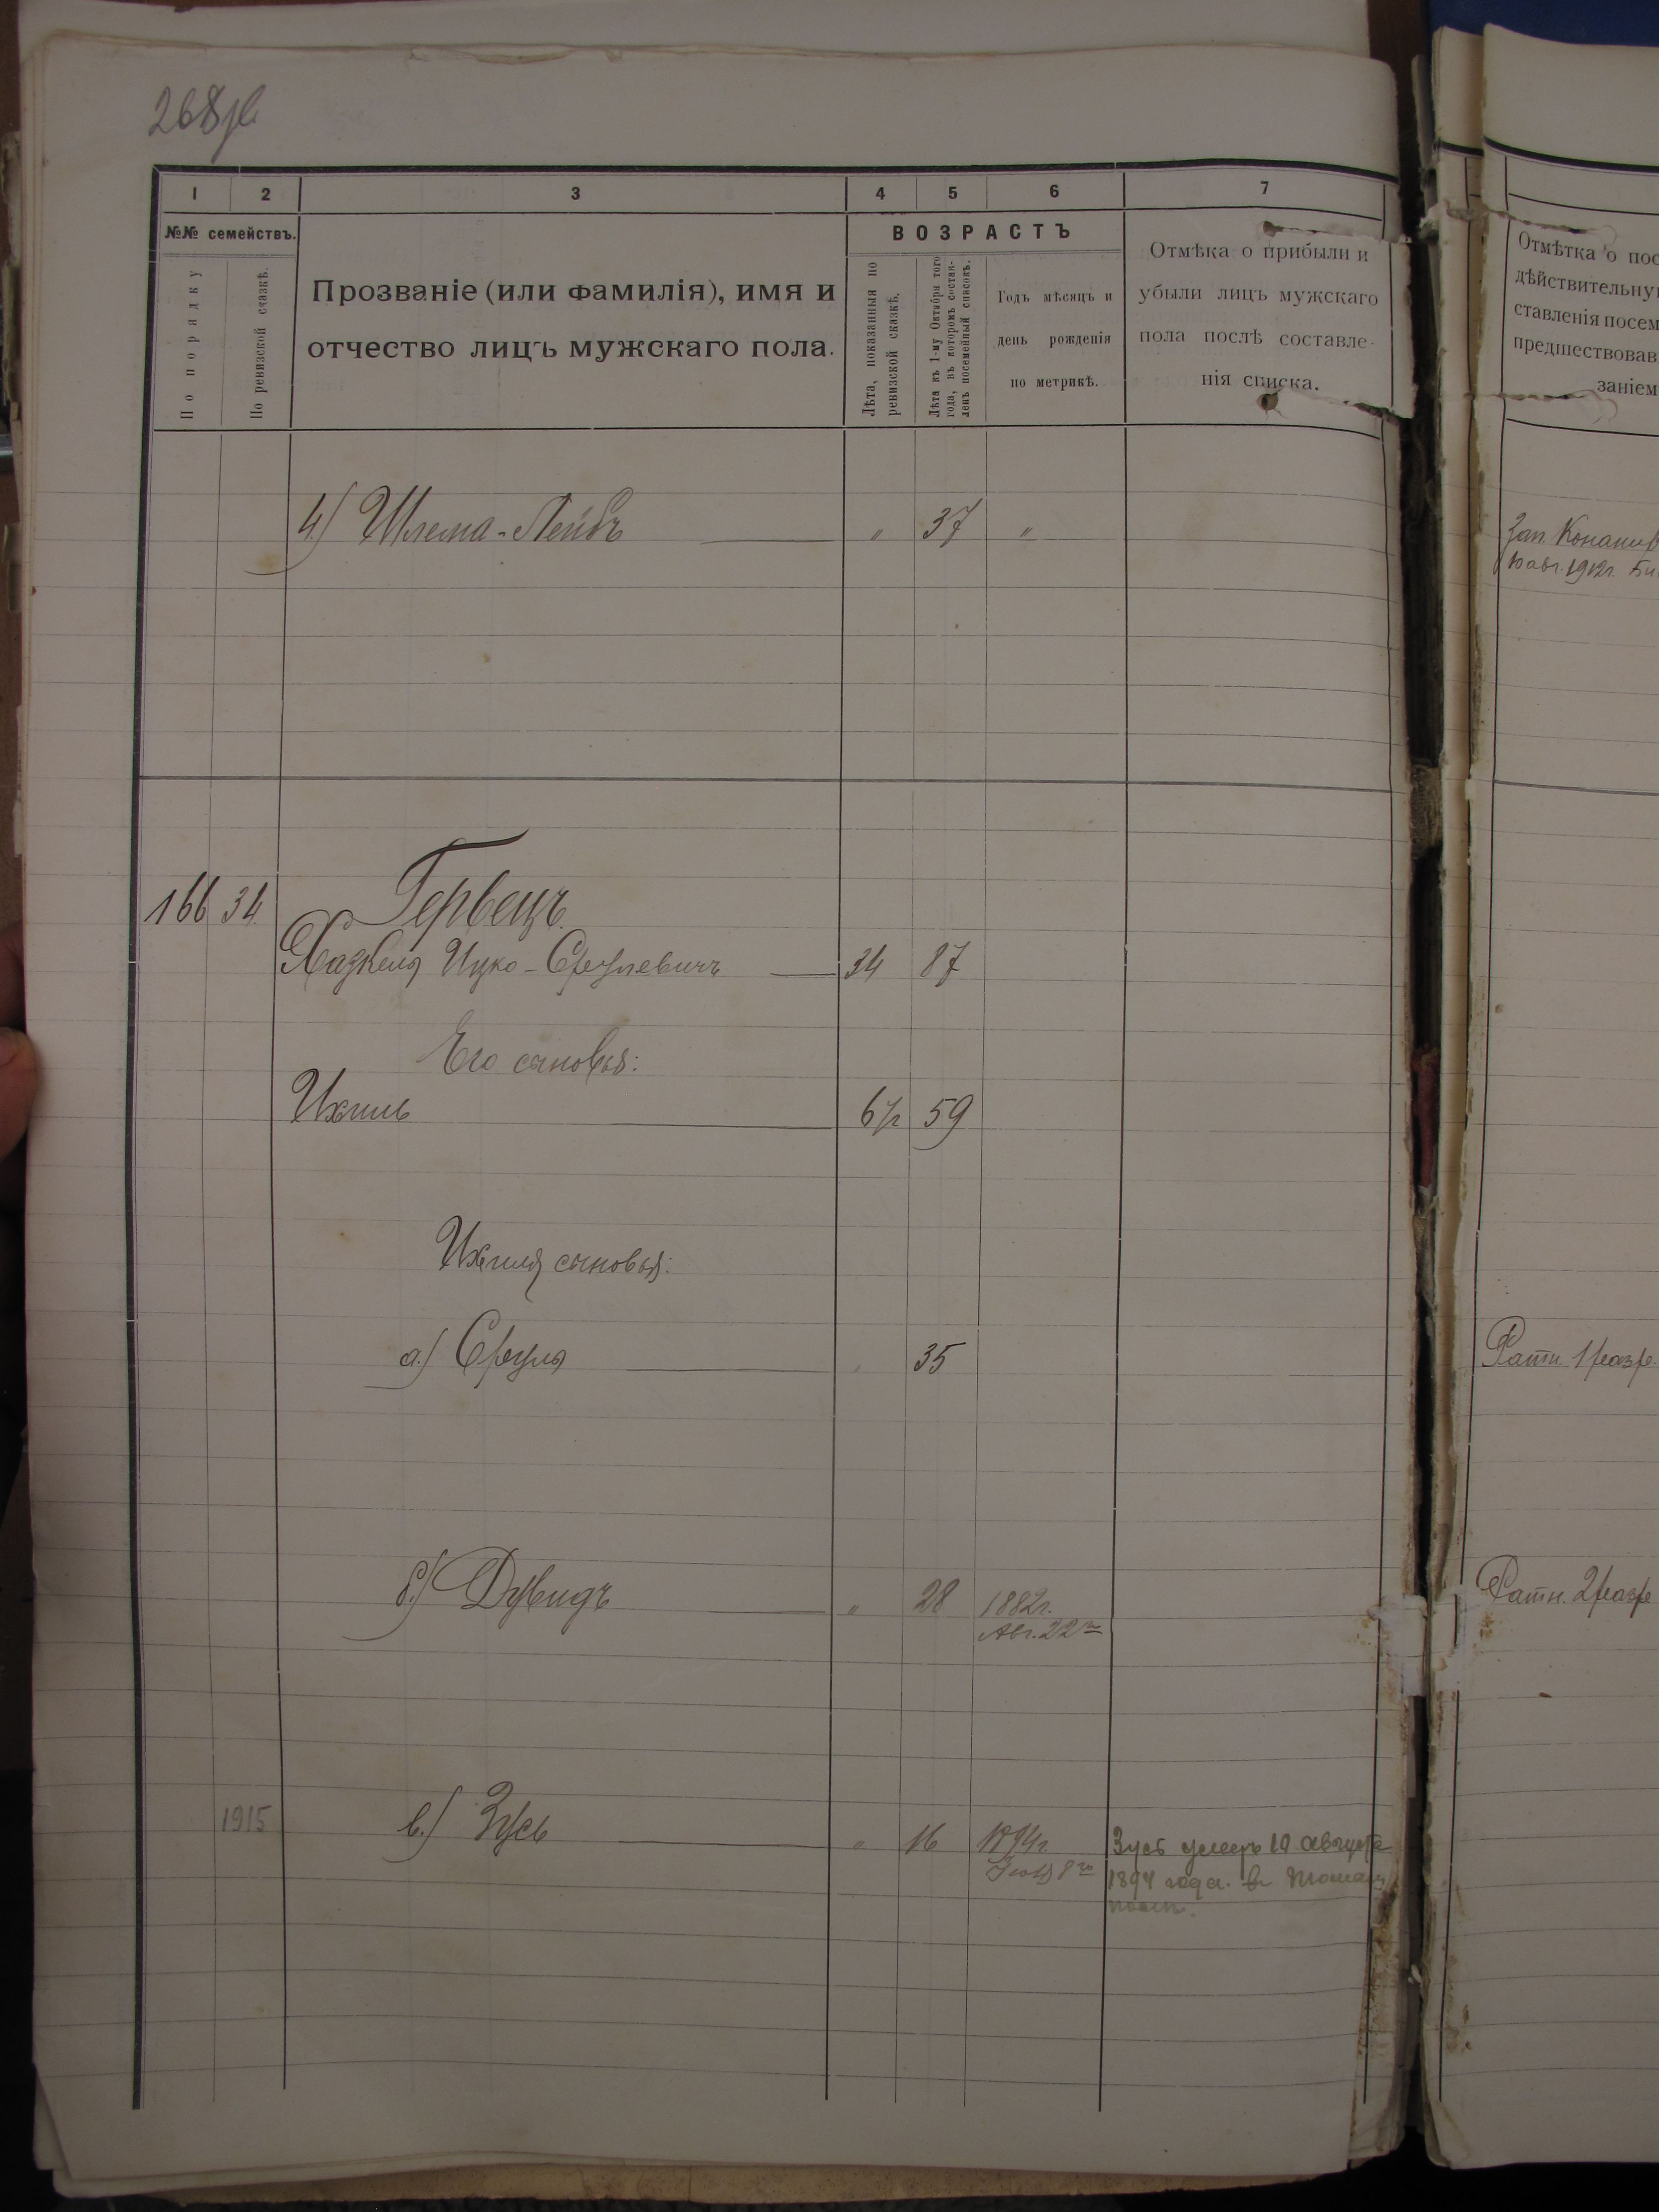 268 об
1 2 3 4 5 6 7
№№ семействъ.
По порядку
По ревизской сказкѣ.
Прозваніе (или фамилія), имя и
отчество лицъ мужскаго пола.
ВОЗРАСТЪ
Лѣта, показанныя по
ревизской сказкѣ.
Лѣта къ 1-му Октября того
года, въ которомъ состав-
ленъ посемейный списокъ.
Годъ мѣсяцъ и
день рожденія
по метрикѣ.
Отмѣка о прибыли и
убыли лицъ мужскаго
пола послѣ составле-
нія списка.
Отмѣтка о пос
дѣйствительну
ставленія посем
предшествовав
заніем
4.) Шлема-Лейбъ " 37 "
Зап.
авг. 1912г.
166 34 Гервецъ.
Хаскель Ицко-Срулевичъ 34 87
Его сыновья:
Ихиль 6/2 59
Ихиля сыновья:
а.) Сруль 35
Ратн. 1 разр.
б.) Дувидъ " 28 1882г.
Авг. 22го
Ратн. 2 разр
1915 в.) Зусь " 16 1894г.
Іюля 8го
Зусь умеръ 19 августа
1894 года. въ